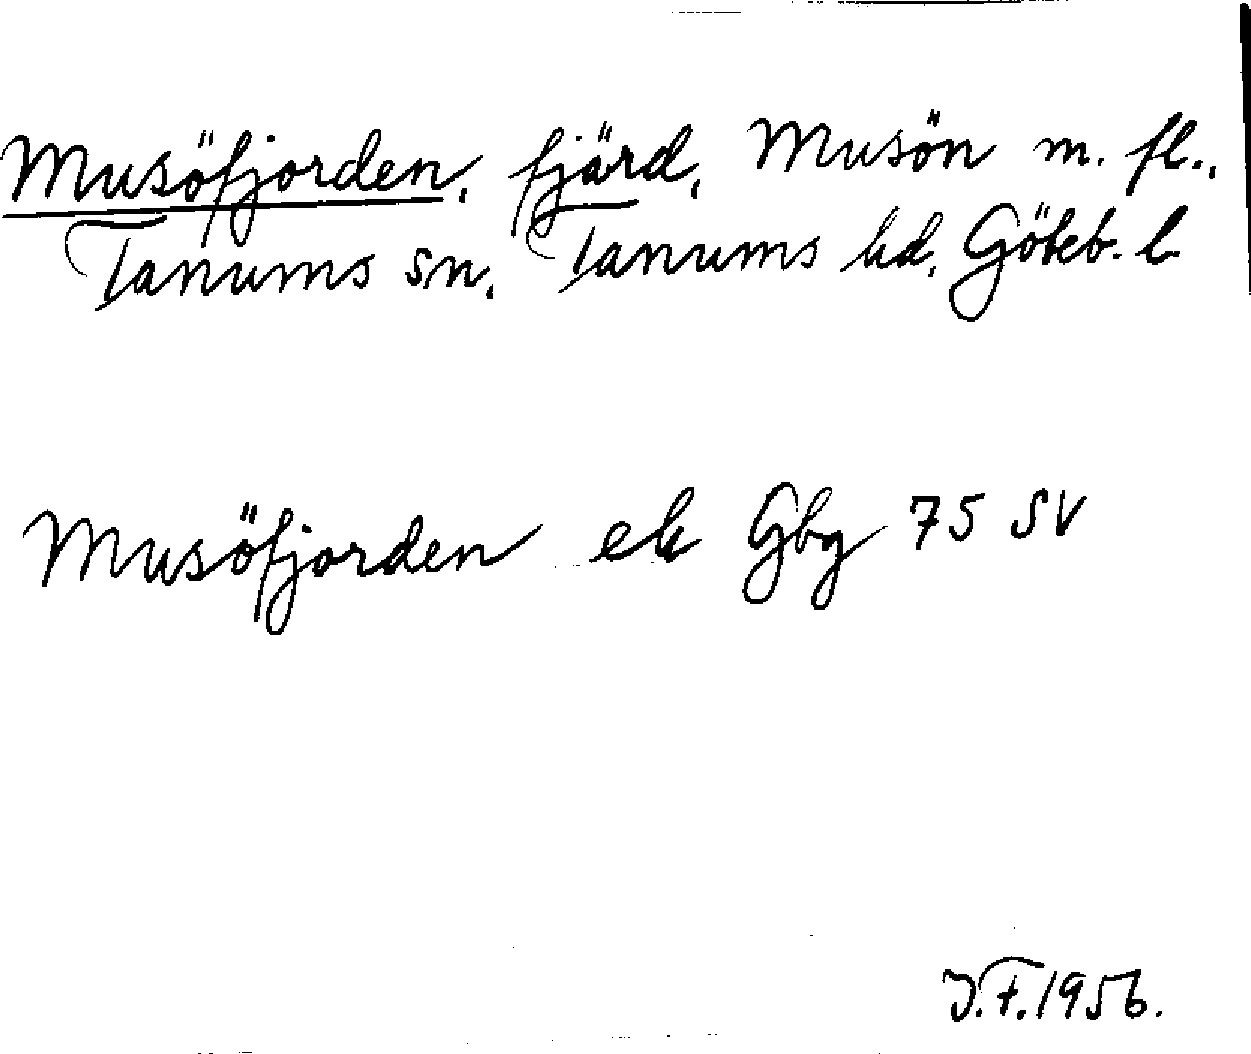 Musöfjorden, fjärd, Musön m. fl.,
Tanums sn, Tanums hd, Göteb. l
Musöfjorden ek Gbg 75 SV
J.F. 1956.